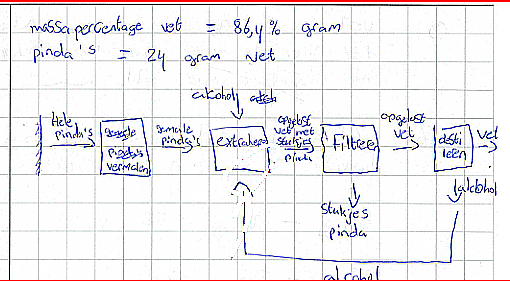 massapercentage vet = 86,4 % gram
pinda's = 24 gram vet
alkohol
Hele pinda's
pinda's vermalen
gemale pinda's
extraheren
opgelost vet met stukjes pinda
Filtree
opgelost vet
desti leën
vet
alcohol
stukjes pinda
alcohol